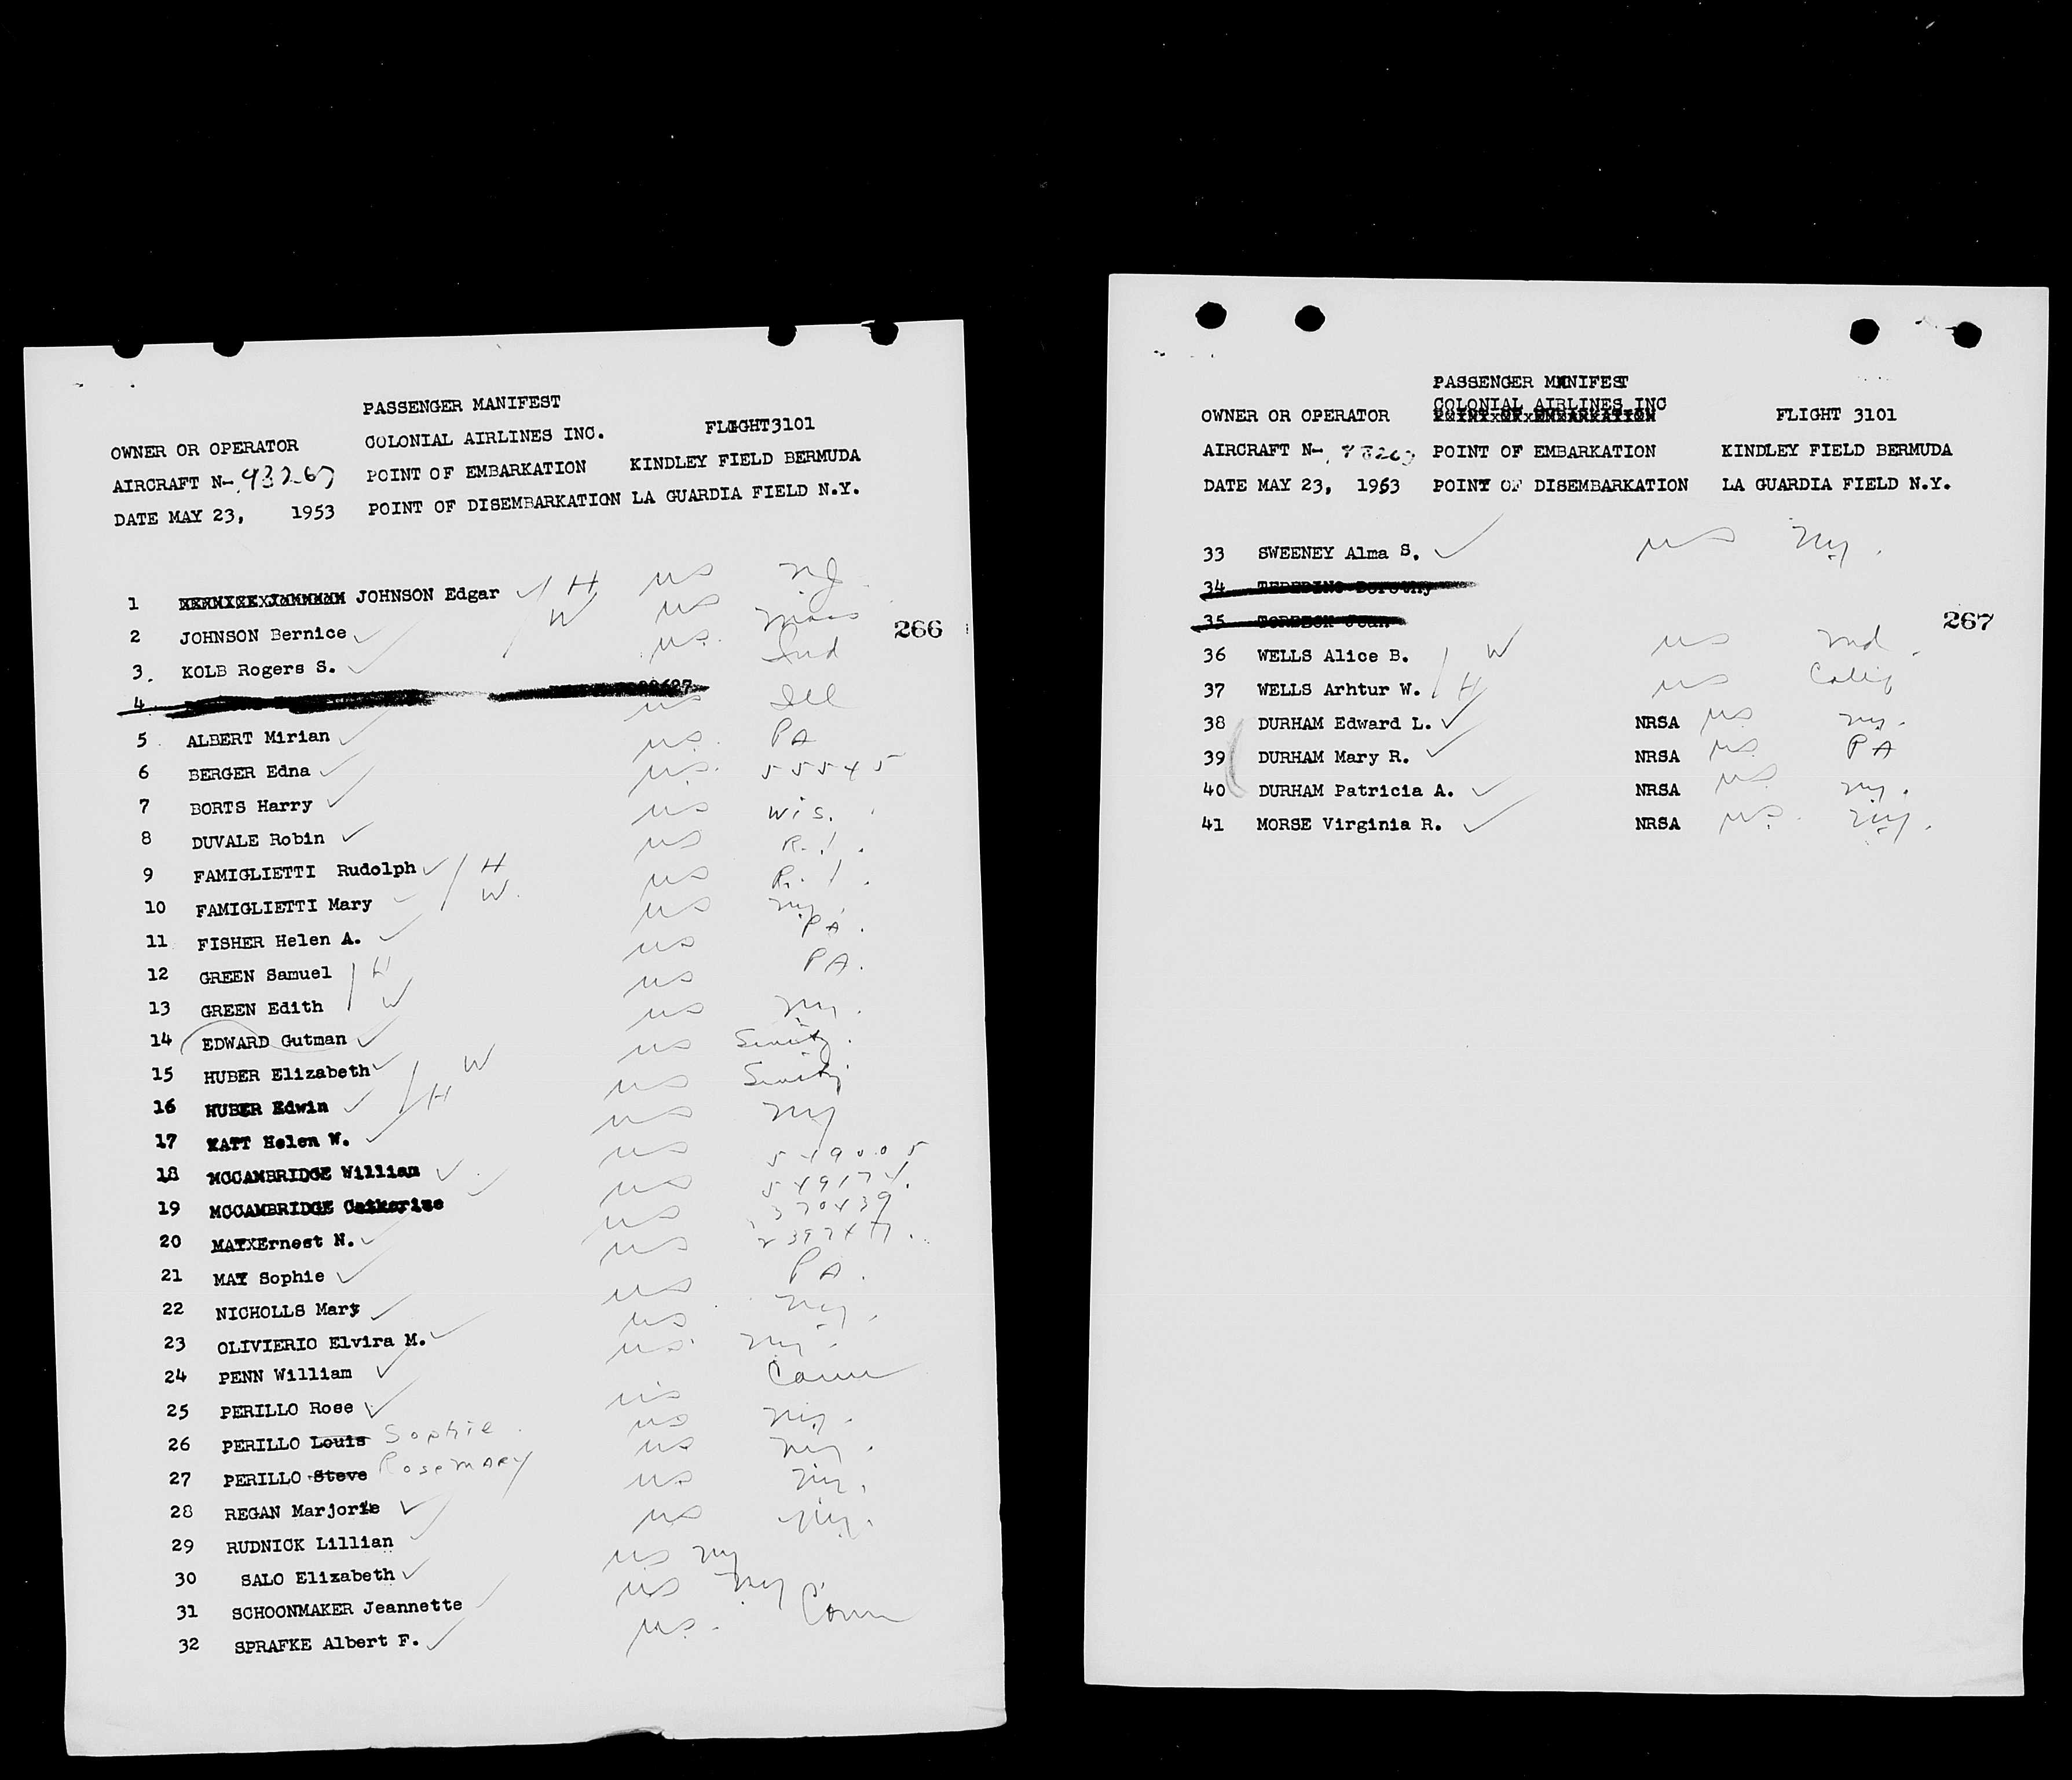 PASSENGER MANIFEST
OWNER OR OPERATOR COLONIAL AIRLINES INC. FLIGHT3101
AIRCRAFT N- 93267 POINT OF EMBARKATION KINDLEY FIELD BERMUDA
DATE MAY 23, 1953 POINT OF DISEMBARKATION LA GUARDIA FIELD N.Y.
1 JOHNSON Edgar H US NJ
2 JOHNSON Bernice W US Mass
266
3. KOLB Rogers S. US. Ind
4. US Ill
5. ALBERT Mirian US. PA
6 BERGER Edna US. 55545
7 BORTS Harry US Wis.
8 DUVALE Robin US R.I.
9 FAMIGLIETTI Rudolph H US R.I.
10 FAMIGLIETTI Mary W. US NY.
11 FISHER Helen A. US PA.
12 GREEN Samuel H US PA.
13 GREEN Edith W US NY.
14 EDWARD Gutman US
15 HUBER Elizabeth W US
16 HUBER Edwin H US NY
17 KATT Helen W. US 549005
18 MCCAMBRIDGE William US 549174.
19 MCCAMBRIDGE Catherine US 370439
20 MAYXErnest N. US
21 MAY Sophie US PA.
22 NICHOLLS Mary US NY.
23 OLIVIERIO Elvira M. US. NY.
24 PENN William US Conn
25 PERILLO Rose US NY.
26 PERILLO Louis Sophie. US NY.
27 PERILLO Steve Rosemary US NY.
28 REGAN Marjorie US NY.
29 RUDNICK Lillian US NY
30 SALO Elizabeth US NY
31 SCHOONMAKER Jeannette US. Conn
32 SPRAFKE Albert F.
PASSENGER MANIFEST
OWNER OR OPERATOR COLONIAL AIRLINES INC FLIGHT 3101
AIRCRAFT N- 93267 POINT OF EMBARKATION KINDLEY FIELD BERMUDA
DATE MAY 23, 1953 POINT OF DISEMBARKATION LA GUARDIA FIELD N.Y.
33 SWEENEY Alma S. US NY.
34 Dorothy
35 Jean
267
36 WELLS Alice B. W US Md.
37 WELLS Arhtur W. H US Calif
38 DURHAM Edward L. NRSA US NY.
39 DURHAM Mary R. NRSA US PA
40 DURHAM Patricia A. NRSA US NY.
41 MORSE Virginia R. NRSA US. NY.